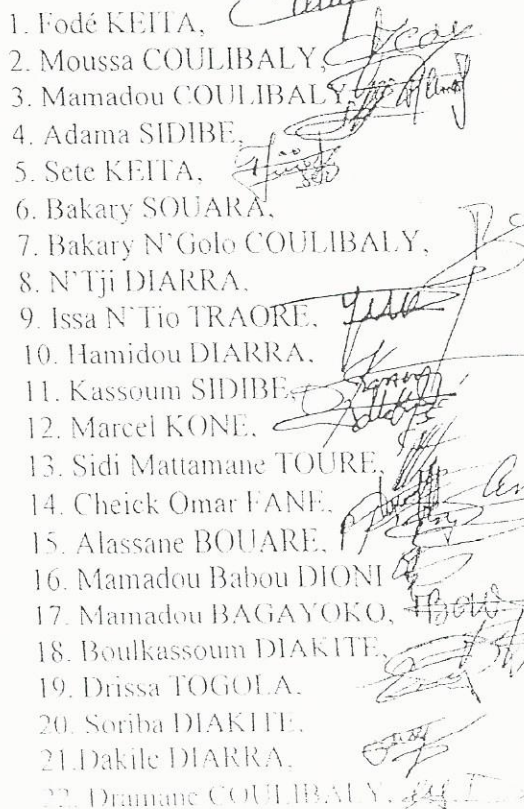 1. Fodé KEITA,
2. Moussa COULIBALY,
3. Mamadou COULIBALY,
4. Adama SIDIBE,
5. Sete KEITA,
6. Bakary SOUARA,
7. Bakary N'Golo COULIBALY,
8. N'Tji DIARRA,
9. Issa N'Tio TRAORE,
10. Hamidou DIARRA,
11. Kassoum SIDIBE,
12. Marcel KONE,
13. Sidi Mattamane TOURE,
14. Cheick Omar FANE,
15. Alassane BOUARE,
16. Mamadou Babou DIONI
17. Mamadou BAGAYOKO,
18. Boulkassoum DIAKITE,
19. Drissa TOGOLA,
20. Soriba DIAKITE,
21.Dakile DIARRA,
22. Dramane COULIBALY,